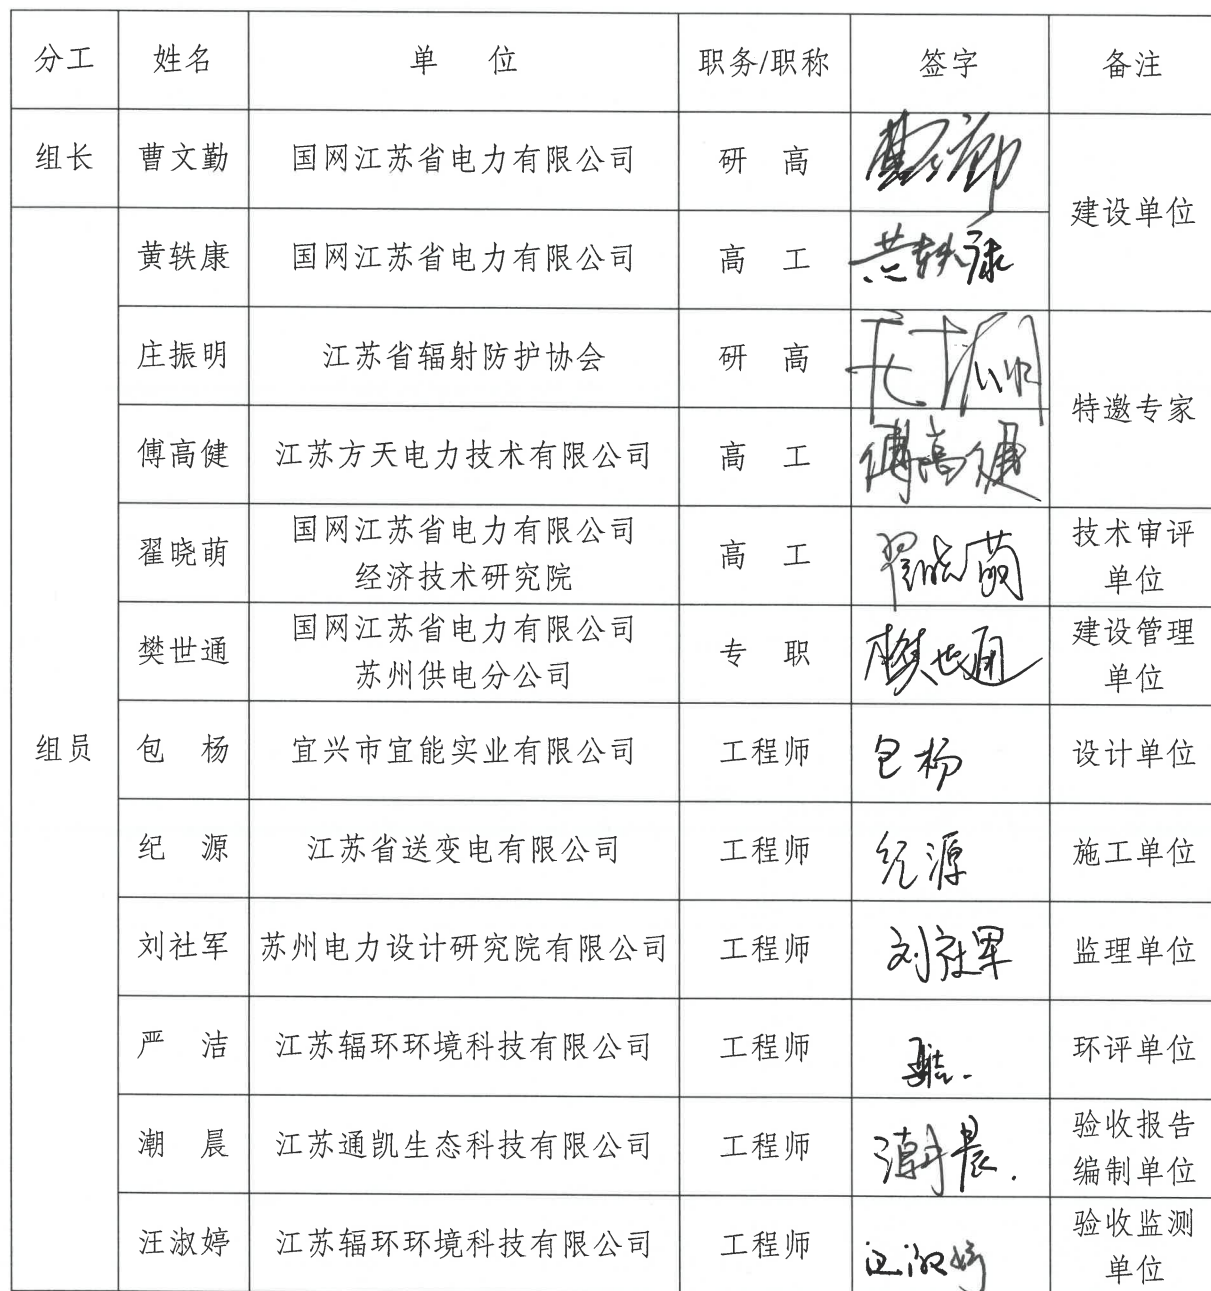 分工 姓名 单 位 职务/职称 签字 备注
组长 曹文勤 国网江苏省电力有限公司 研 高 曹文勤 建设单位
组员 黄轶康 国网江苏省电力有限公司 高 工 黄轶康
庄振明 江苏省辐射防护协会 研 高 庄振明 特邀专家
傅高健 江苏方天电力技术有限公司 高 工 傅高健
翟晓萌 国网江苏省电力有限公司 高 工 翟晓萌 技术审评
经济技术研究院 单位
樊世通 国网江苏省电力有限公司 专 职 樊世通 建设管理
苏州供电分公司 单位
包 杨 宜兴市宜能实业有限公司 工程师 包杨 设计单位
纪 源 江苏省送变电有限公司 工程师 纪源 施工单位
刘社军 苏州电力设计研究院有限公司 工程师 刘社军 监理单位
严 洁 江苏辐环环境科技有限公司 工程师 严洁 环评单位
潮 晨 江苏通凯生态科技有限公司 工程师 潮晨 验收报告
编制单位
汪淑婷 江苏辐环环境科技有限公司 工程师 汪淑婷 验收监测
单位